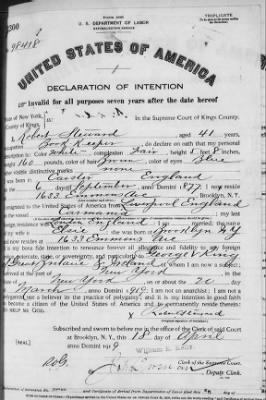 TRIPLICATE
U. S. DEPARTMENT OF LABOR
NATURALIZATION SERVICE
300
98418
UNITED STATES OF AMERICA
DECLARATION OF INTENTION
Invalid for all purposes seven years after the date hereof
State of New York,
County of Kings,
In the Supreme Court of Kings County.
I, Robert Steward, aged 41 years,
occupation Book Keeper, do declare on oath that my personal
description is: Color White, complexion Fair, height 5 feet inches,
weight 160 pounds, color of hair Brown, color of eyes Blue
other visible distinctive marks none
England
on the 6 day of September, anno Domini 1877; I now reside
at 1633 Emmons Ave, Brooklyn, N. Y.
I emigrated to the United States of America from Liverpool England
on the vessel Carmania; my last
foreign residence was England; I am married; the name
of my wife is Elsie; she was born at Brooklyn NY
and now resides at 1633 Emmons Ave
It is my bona fide intention to renounce forever all allegiance and fidelity to any foreign
prince, potentate, state, or sovereignty, and particularly to George V King
of Great Britain & Ireland, of whom I am now a subject;
I arrived at the port of New York, in the
State of New York, on or about the 20 day
of March, anno Domini 1912; I am not an anarchist; I am not a
polygamist nor a believer in the practice of polygamy; and it is my intention in good faith
to become a citizen of the United States of America and to permanently reside therein:
SO HELP ME GOD.
x Robt Steward
Subscribed and sworn to before me in the office of the Clerk of said Court
[SEAL]
at Brooklyn, N. Y., this 18 day of April
anno Domini 1919
Clerk of the Supreme Court.
Deputy Clerk.